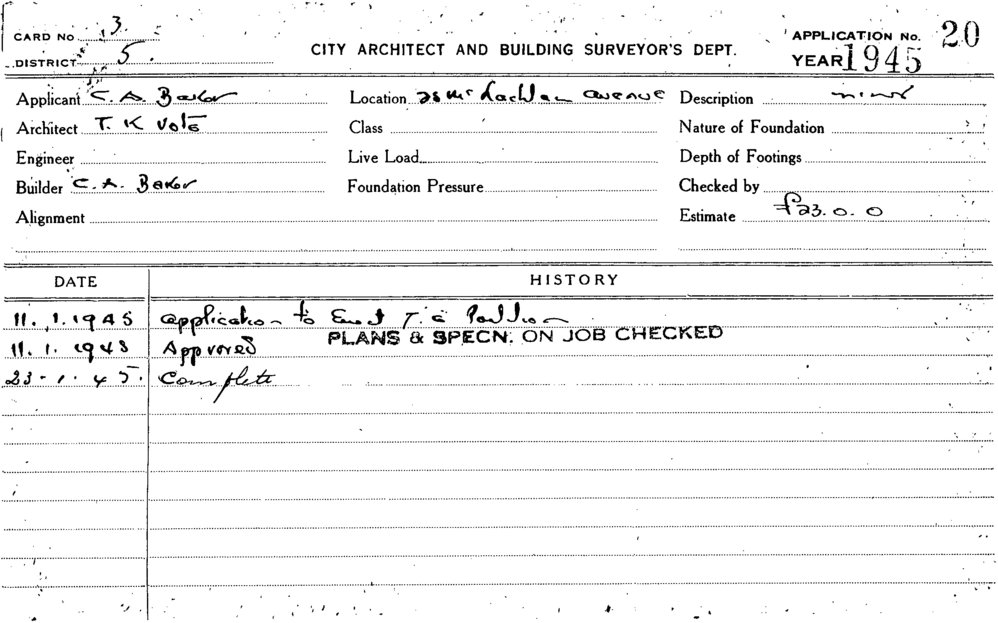 CARD No 3.
CITY ARCHITECT AND BUILDING SURVEYOR'S DEPT.
APPLICATION No. 20
DISTRICT 5.
YEAR 1945
Applicant C. A. Baker Location 28 McLachlan avenue Description minor
Architect T. K Vote Class Nature of Foundation
Engineer Live Load Depth of Footings
Builder C. A. Baker Foundation Pressure Checked by
Alignment Estimate £23.0.0
DATE HISTORY
11.1.1945 application to Erect T.C
PLANS & SPECN. ON JOB CHECKED
11.1.1945 Approved
23-1.45. Complete